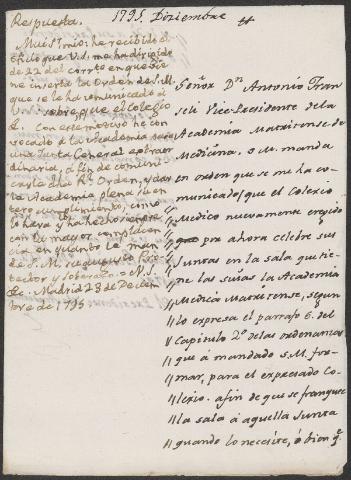 1795. Diziembre
Respuesta.
Mui Sr. mio: he recibido el
Oficio que V.S. me ha dirigido
de 22 del corrte en que se
me inserta la Orden de S.M.
que se le ha comunicado á
sobre que el Colegio
&. Con este motivo he con-
vocado á la Academia para
una Junta General extraor-
dinaria, á fin de comuni-
carla dha Rl. Orden, y dar
la Academia pleno i en-
tero cumplimiento, como
lo haya y ha hecho siempre
con la mayor complacen-
cia en quanto le man-
da S.M. su augusto Pro-
tector y Soberano = N.S.
&c. Madrid 23 de Deciem-
bre de 1795
Señor Dn. Antonio Fran
seli Vice-Presidente de la
Academia Matritense de
Medicina. S.M. manda
en orden que se me ha co-
municado, que el Colexio
Medico nuevamente erigido
por ahora celebre sus
Juntas en la sala que tie-
ne las suias la Academia
Medica Matritense, segun
lo expresa el parrafo 6. del
Capitulo 2º de las ordenanzas
que á mandado S.M. for-
mar, para el expresado Co-
lexio. afin de que se franquee
la sala á aquella Junta
quando lo necesite, ó bien q.